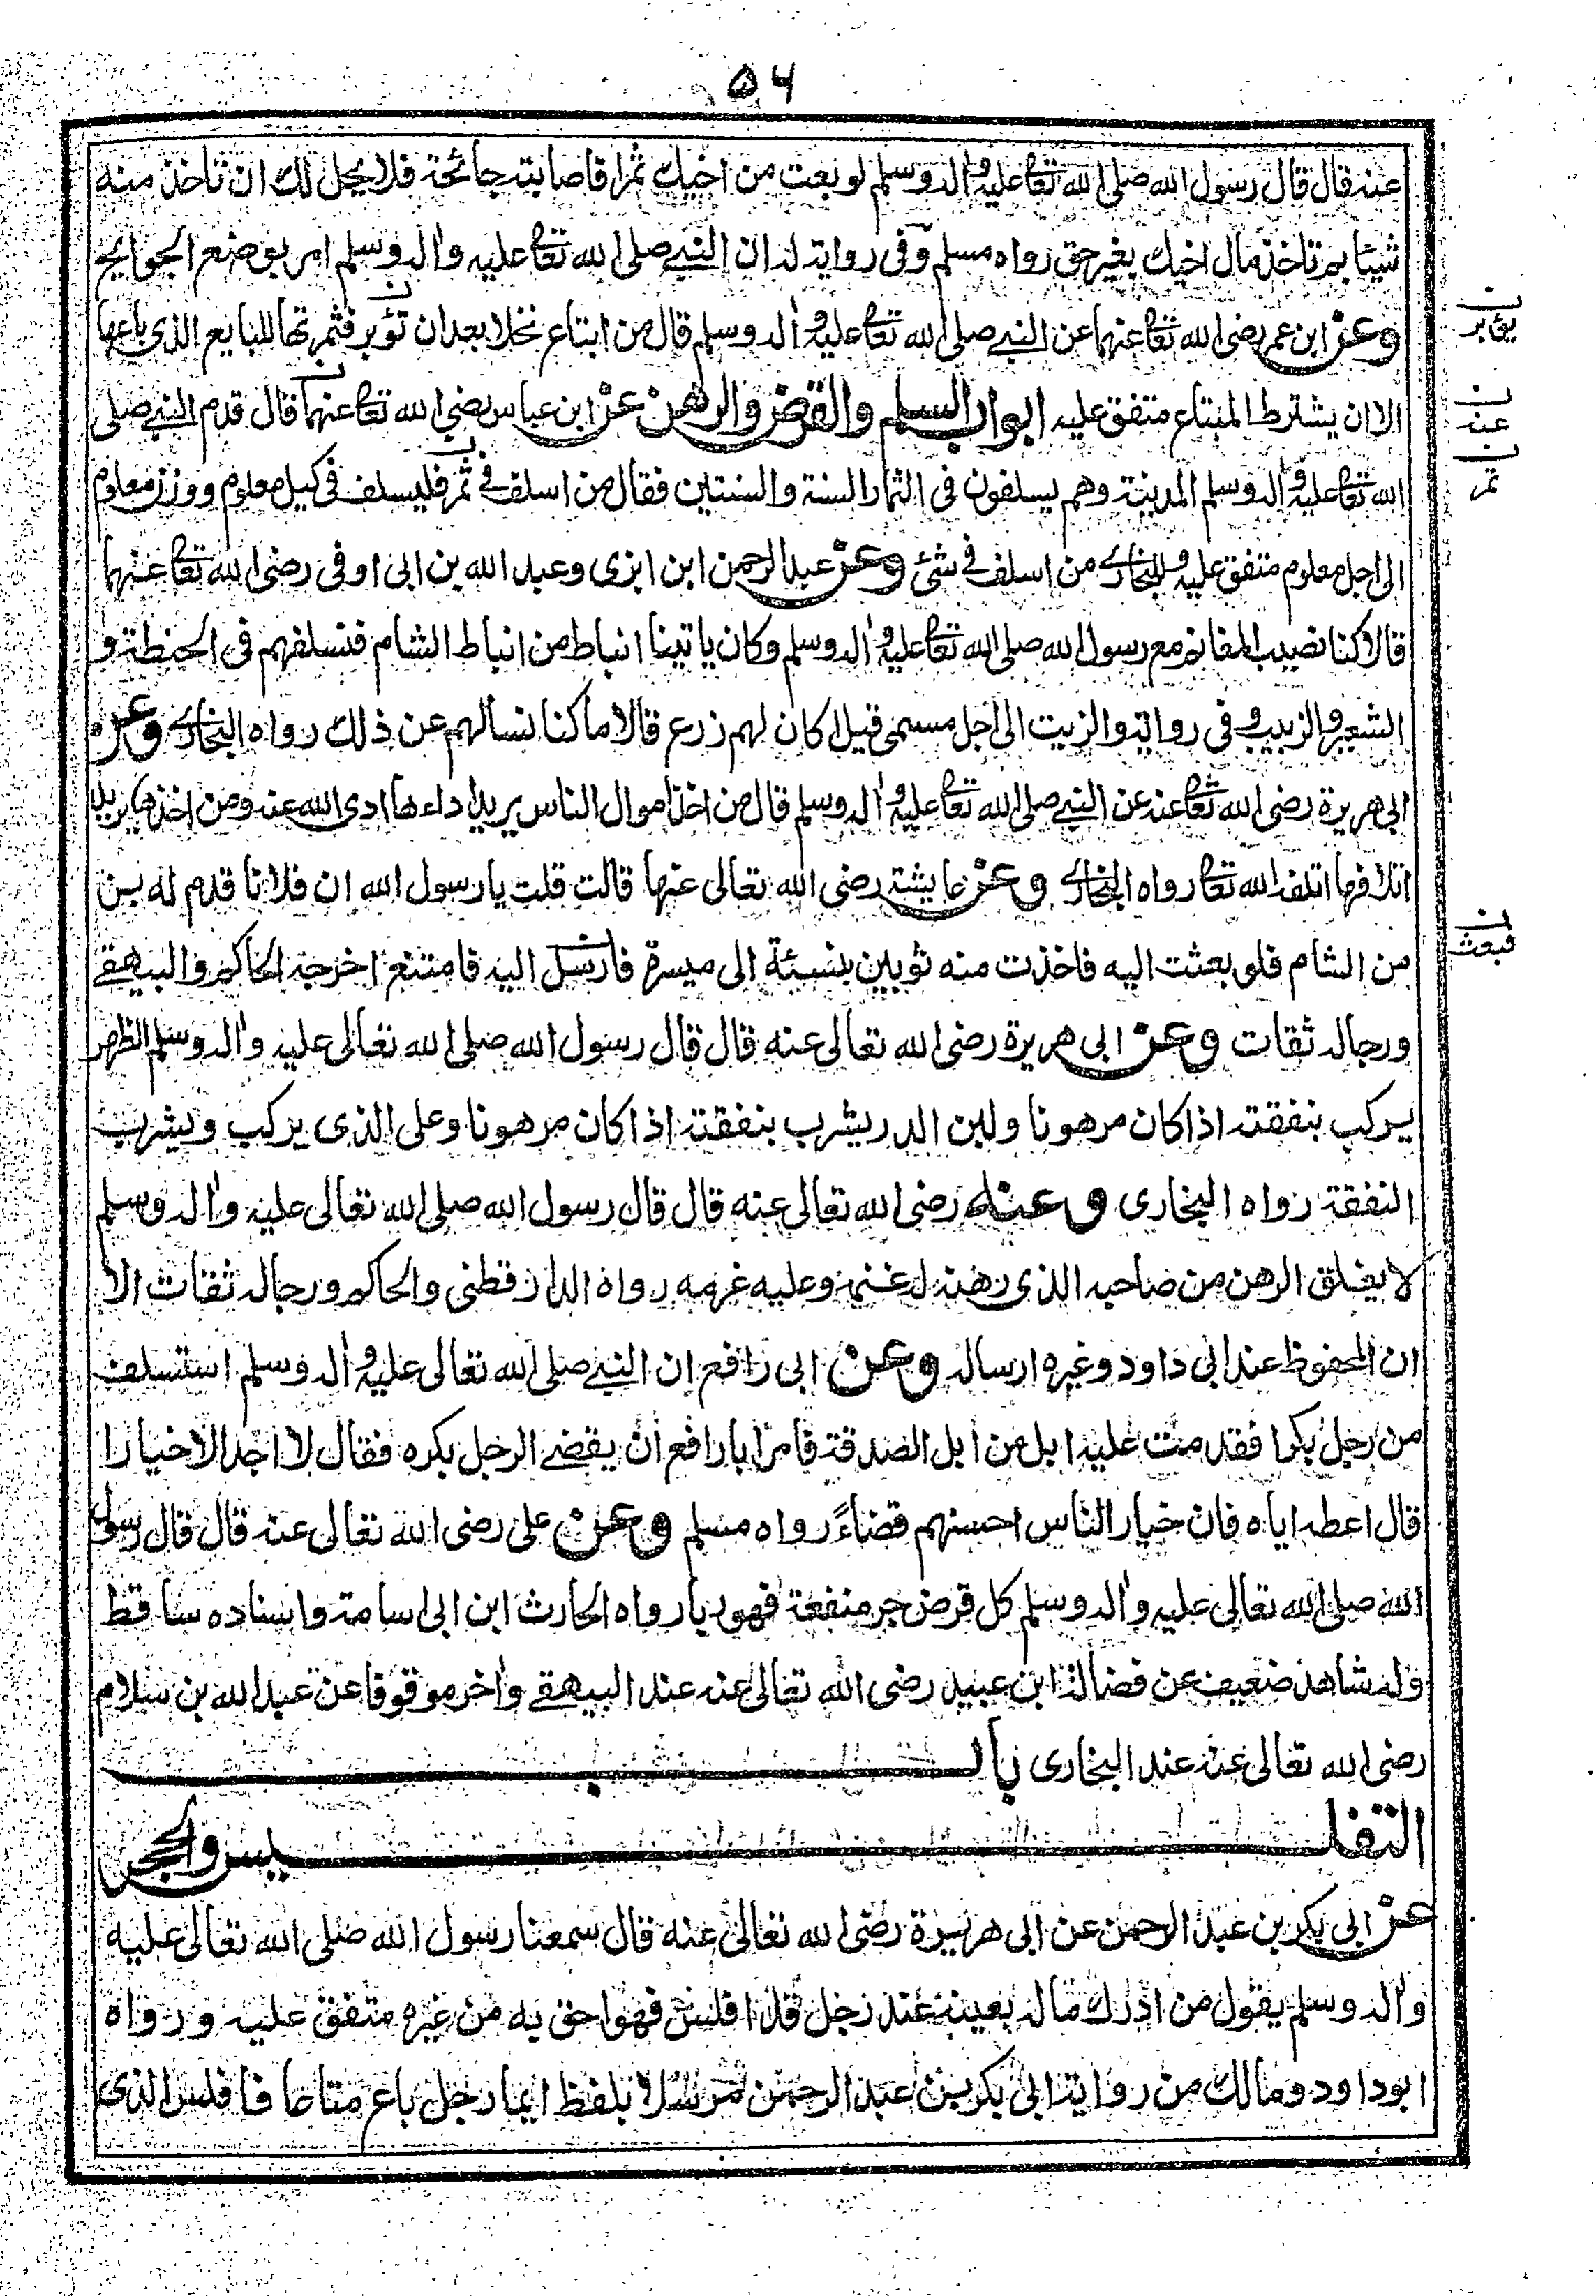 ۵۶
عنه قال قال رسول الله صلى الله تعالى عليه واله وسلم لو بعت من اخيك ثمرا فاصابته جائحة فلا يحل لك ان تاخذ منه
شيئا بم تاخذ مال اخيك بغير حق رواه مسلم وفى رواية له ان النبي صلى الله تعالى عليه واله وسلم امر بوضع الجوايح
وعن ابن عمر رضى الله تعالى عنهما عن النبي صلى الله تعالى عليه واله وسلم قال من ابتاع نخلا بعد ان تؤبر فثمرتها للبايع الذى باعها
يؤبر
الا ان يشترط المبتاع متفق عليه ابواب السلم والقرض والرهن عن ابن عباس رضى الله تعالى عنهما قال قدم النبي صلى
عنه
الله تعالى عليه واله وسلم المدينة وهم يسلفون فى الثمار السنة والسنتين فقال من اسلف في ثمر فليسلف فى كيل معلوم ووزن معلوم
تمر
الى اجل معلوم متفق عليه وللبخاري من اسلف في شئ وعن عبد الرحمن ابن ابزى وعبد الله بن ابى اوفى رضى الله تعالى عنهما
قالا كنا نصيب المغانم مع رسول الله صلى الله تعالى عليه واله وسلم وكان ياتينا انباط من انباط الشام فنسلفهم فى الحنطة و
الشعير والزبيب وفى رواية والزيت الى اجل مسمى قيل اكان لهم زرع قالا ما كنا نسالهم عن ذلك رواه البخاري وعن
ابى هريرة رضى الله تعالى عنه عن النبي صلى الله تعالى عليه واله وسلم قال من اخذ اموال الناس يريد اداءها ادى الله عنه ومن اخذها يريد
اتلافها اتلفه الله تعالى رواه البخاري وعن عايشة رضى الله تعالى عنها قالت قلت يا رسول الله ان فلانا قدم له بن
من الشام فلو بعثت اليه فاخذت منه ثوبين بنسيئة الى ميسرة فارسل اليه فامتنع اخرجه الحاكم والبيهقي
فبعث
ورجاله ثقات وعن ابى هريرة رضى الله تعالى عنه قال قال رسول الله صلى الله تعالى عليه واله وسلم الظهر
يركب بنفقته اذا كان مرهونا ولبن الدر يشرب بنفقته اذا كان مرهونا وعلى الذى يركب ويشرب
النفقة رواه البخارى وعنه رضى الله تعالى عنه قال قال رسول الله صلى الله تعالى عليه واله وسلم
لا يغلق الرهن من صاحبه الذى رهنه له غنمه وعليه غرمه رواه الدارقطنى والحاكم ورجاله ثقات الا
ان المحفوظ عند ابى داود وغيره ارساله وعن ابى رافع ان النبي صلى الله تعالى عليه واله وسلم استسلف
من رجل بكرا فقدمت عليه ابل من ابل الصدقة فامر ابا رافع ان يقضي الرجل بكره فقال لا اجد الا خيارا
قال اعطه اياه فان خيار الناس احسنهم قضاءً رواه مسلم وعن على رضى الله تعالى عنه قال قال رسول
الله صلى الله تعالى عليه واله وسلم كل قرض جر منفعة فهو ربا رواه الحارث ابن ابى اسامة واسناده ساقط
وله شاهد ضعيف عن فضالة ابن عبيد رضى الله تعالى عنه عند البيهقي واخر موقوفا عن عبد الله بن سلام
رضى الله تعالى عنه عند البخارى باب
التفليس والحجر
عن ابى بكر بن عبد الرحمن عن ابى هريرة رضى الله تعالى عنه قال سمعنا رسول الله صلى الله تعالى عليه
واله وسلم يقول من ادرك ماله بعينه عند رجل قد افلس فهو احق به من غيره متفق عليه ورواه
ابو داود ومالك من رواية ابى بكر بن عبد الرحمن مرسلا بلفظ ايما رجل باع متاعا فافلس الذى